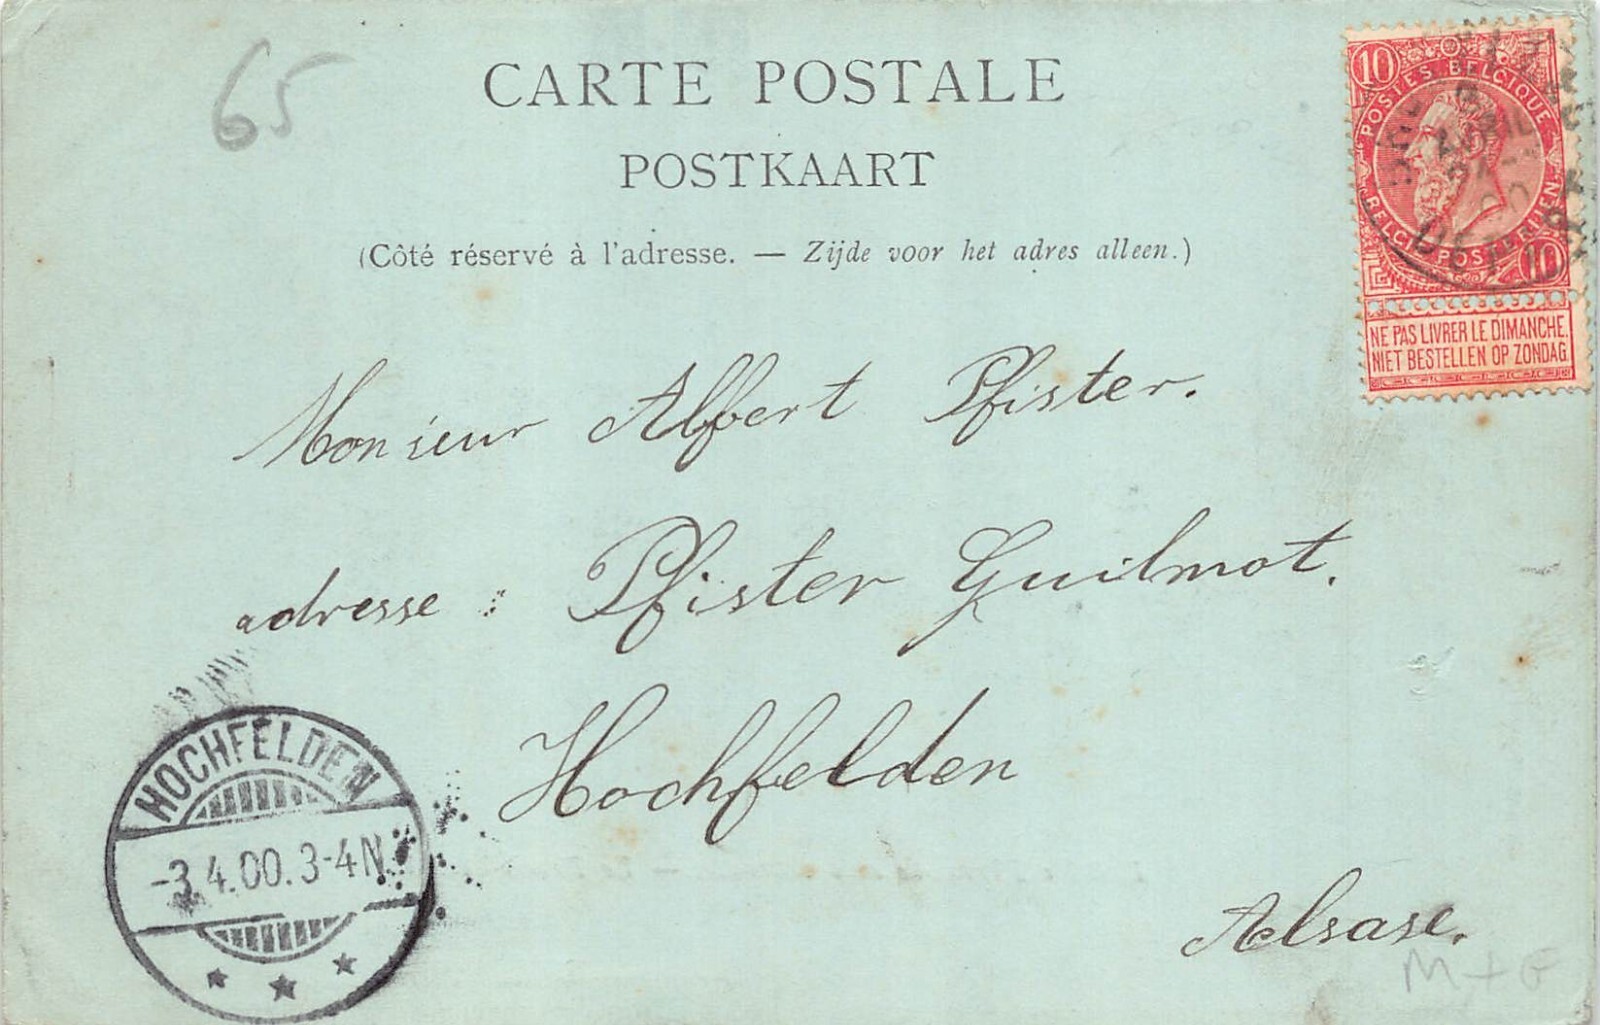 65
CARTE POSTALE
POSTKAART
(Côté réservé à l'adresse. — Zijde voor het adres alleen.)
10 POSTES BELGIQUE
BELGIE POSTERIJEN 10
AVRIL
NE PAS LIVRER LE DIMANCHE.
NIET BESTELLEN OP ZONDAG.
Monsieur Albert Pfister.
adresse : Pfister Guilmot.
Hochfelden
Alsase.
HOCHFELDEN
-3.4.00.3-4N.
M+G